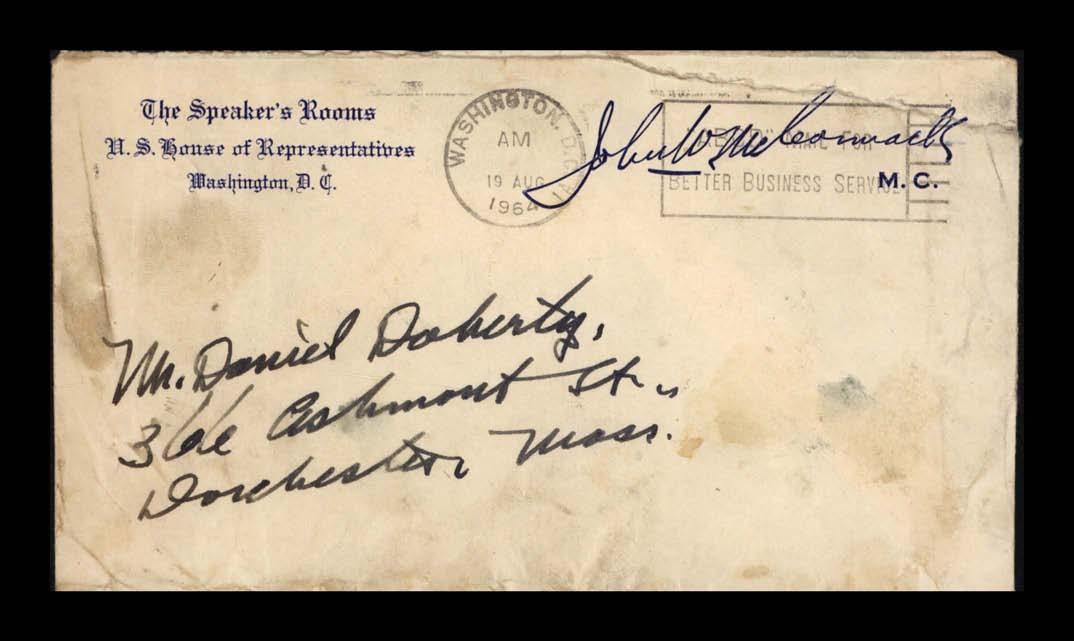 The Speaker's Rooms
U.S. House of Representatives
Washington, D. C.
WASHINGTON, D.C.
AM
19 AUG
1964
John W. McCormack
MAIL FOR
BETTER BUSINESS SERVICE
M. C.
Mr. Daniel Doherty,
Ashmont St.,
Dorchester, Mass.